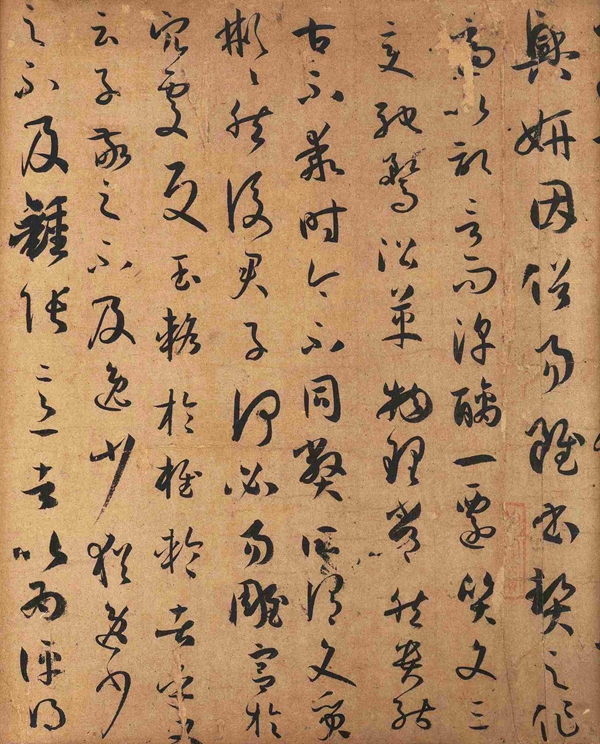 興妍因俗易雖書契之作
適以記言而淳醨一遷質文三
變馳鶩沿革物理常然貴能
古不乖時今不同弊所謂文質
彬々然後君子何必易雕宮於
穴處反玉輅於椎輪者乎又
云子敬之不及逸少猶逸少
之不及鍾張意者以為評得